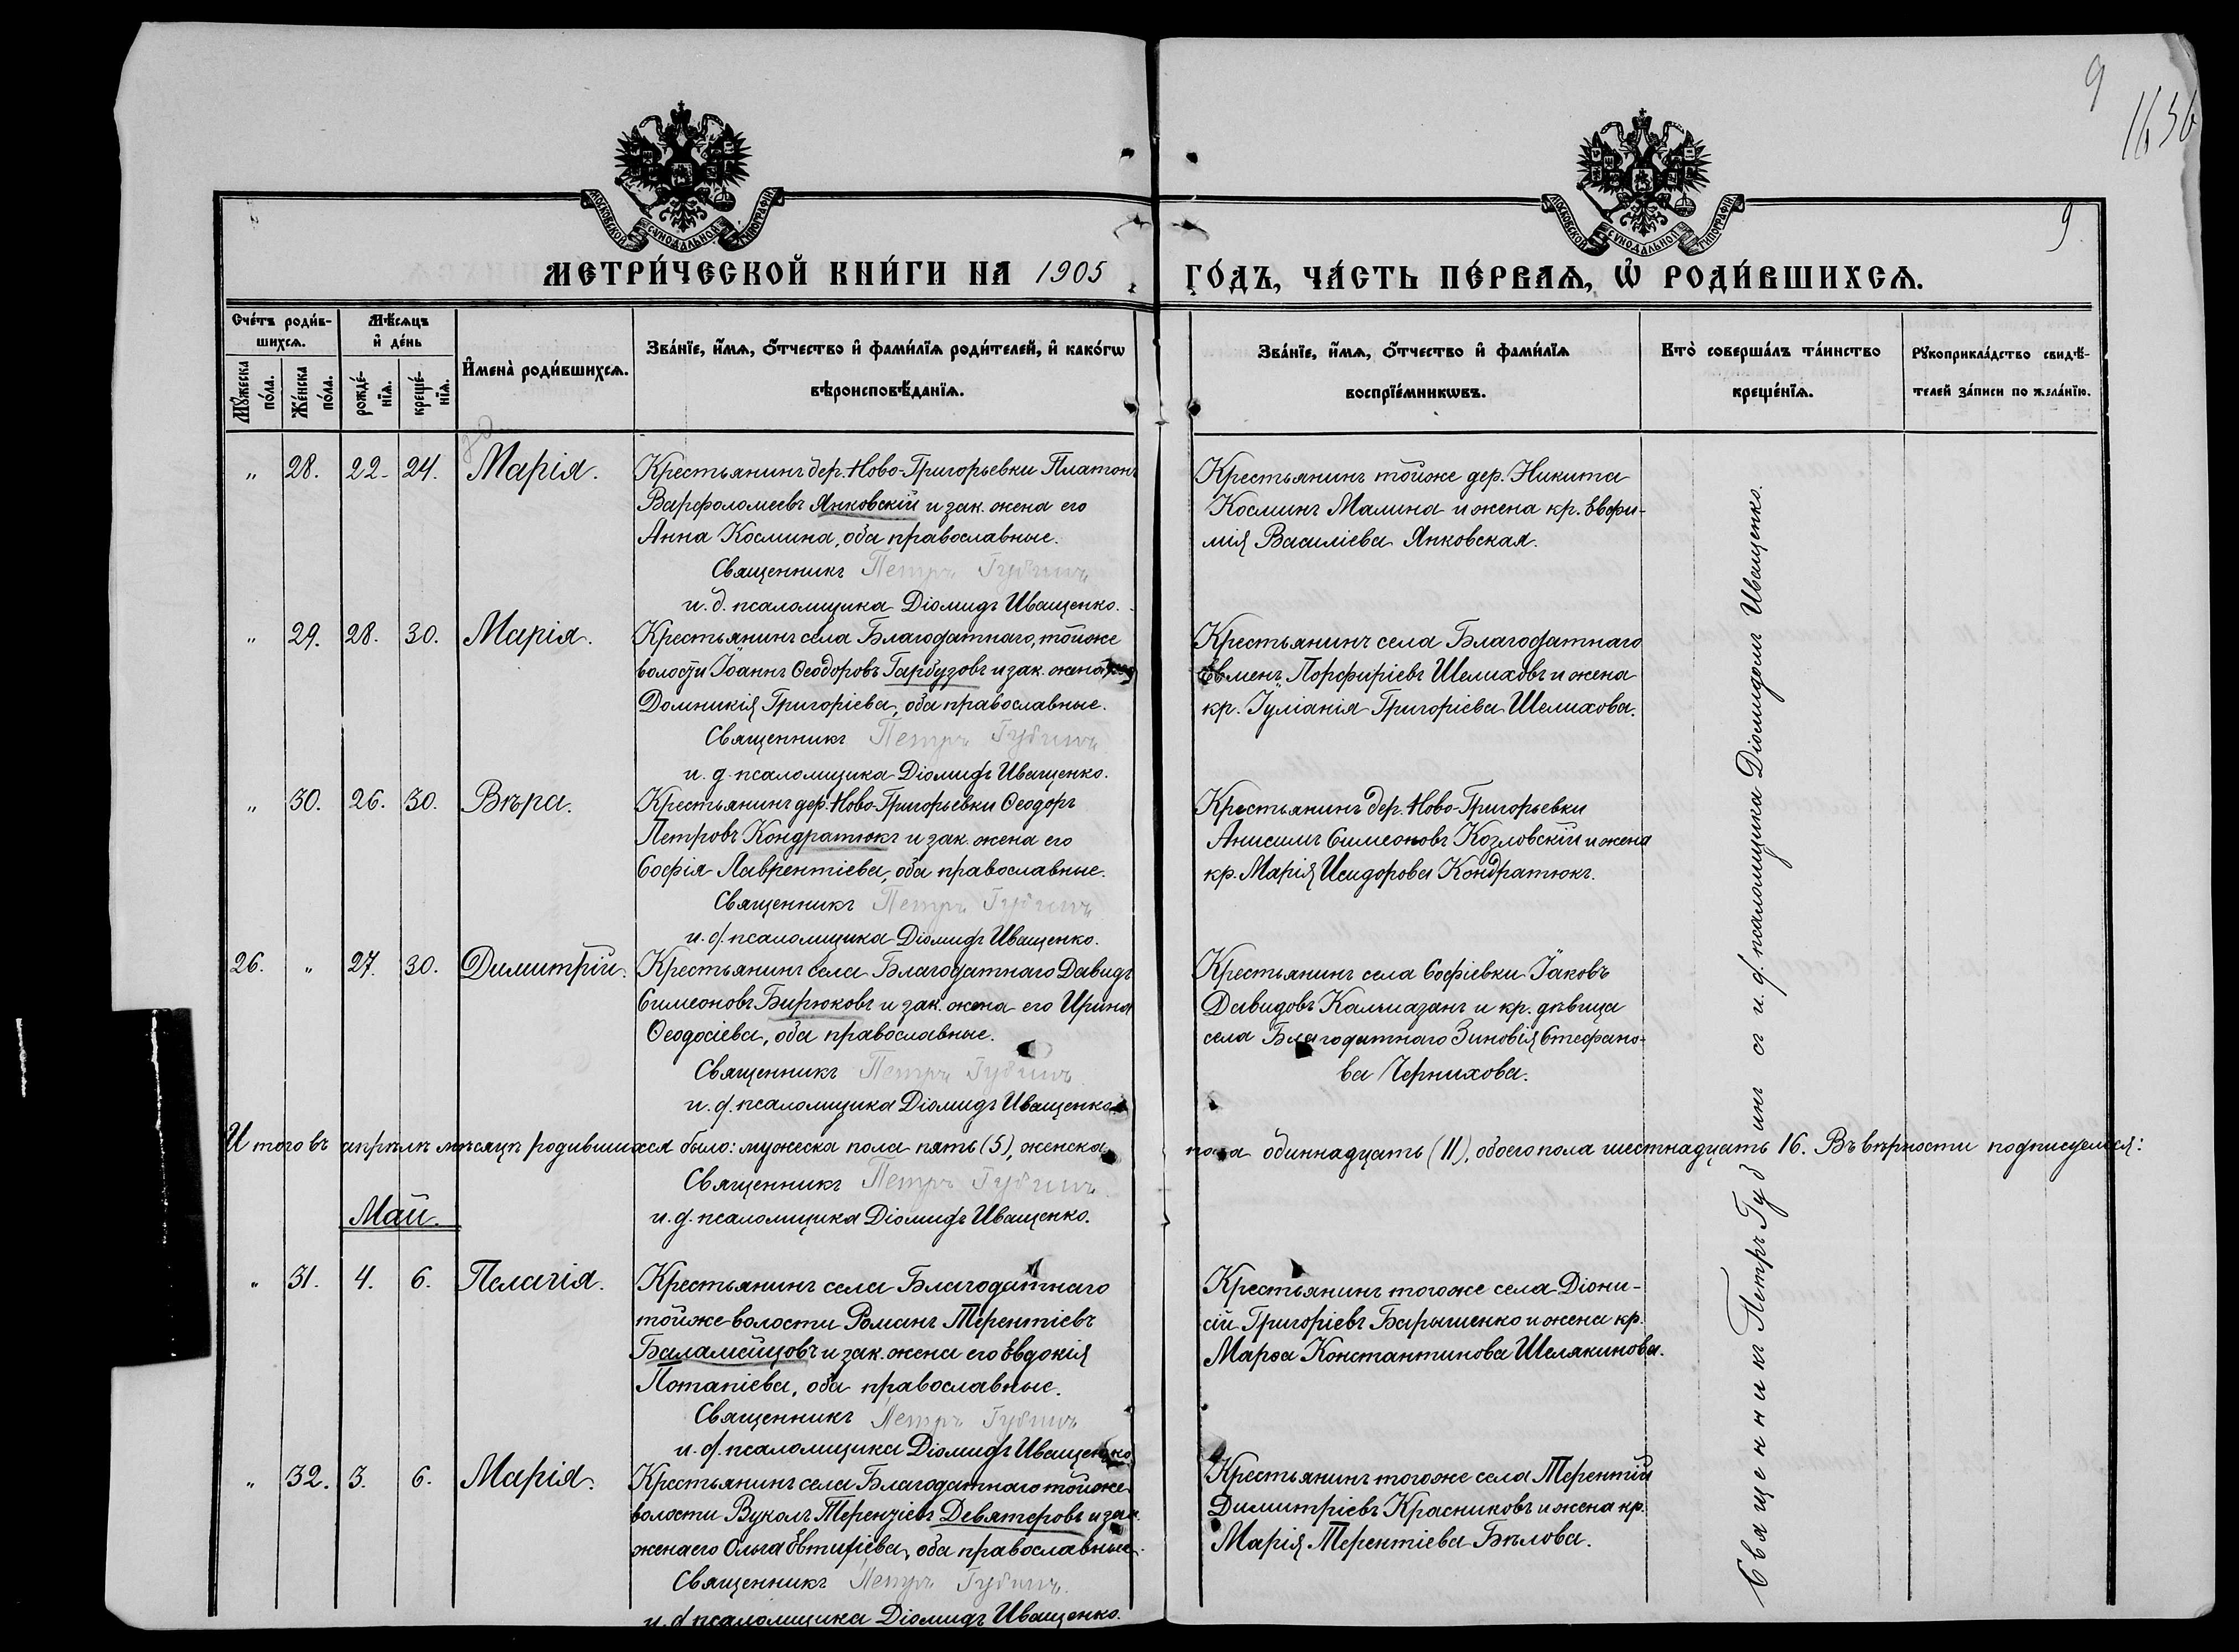 9
1636
9
МОСКОВСКОЙ СУНОДАЛЬНОЙ ТИПОГРАФІИ
МОСКОВСКОЙ СУНОДАЛЬНОЙ ТИПОГРАФІИ
МЕТРИ́ЧЕСКОЙ КНИ́ГИ НА 1905 ГО́ДЪ, ЧА́СТЬ ПЕ́РВАѦ, Ѡ҆ РОДИ́ВШИХСѦ.
Сче́тъ роди́в-
шихсѧ.
Мꙋ́жеска по́ла.
Же́нска по́ла.
Мѣ́сѧцъ
и҆ де́нь
рожде́-
нїѧ.
креще́-
нїѧ.
И҆мена̀ роди́вшихсѧ.
Зва́нїе, и҆́мѧ, ѻ҆́тчество и҆ фами́лїѧ роди́телей, и҆ како́гѡ
вѣроисповѣ́данїѧ.
Зва́нїе, и҆́мѧ, ѻ҆́тчество и҆ фами́лїѧ
воспрїе́мникѡвъ.
Кто̀ соверша́лъ та́инство
креще́нїѧ.
Рꙋкоприкла́дство свидѣ́-
телей за́писи по жела́нїю.
„ 28. 22. 24. Марія.
Крестьянинъ дер. Ново-Григорьевки Платонъ
Варфоломеевъ Янковскій и зак. жена его
Анна Космина, оба православные.
Священникъ Петръ Губинъ
и. д. псаломщика Діомидъ Иващенко.
Крестьянинъ тойже дер. Никита
Косминъ Малина и жена кр. Евфи-
мія Василіева Янковская.
„ 29. 28. 30. Марія.
Крестьянинъ села Благодатнаго, тойже
волости Іоаннъ Ѳеодоровъ Гарбузовъ и зак. жена его
Домникія Григоріева, оба православные.
Священникъ Петръ Губинъ
и. д. псаломщика Діомидъ Иващенко.
Крестьянинъ села Благодатнаго
Евменъ Порфиріевъ Шелиховъ и жена
кр. Іуліанія Григоріева Шелихова.
„ 30. 26. 30. Вѣра.
Крестьянинъ дер. Ново-Григорьевки Ѳеодоръ
Петровъ Кондратюкъ и зак. жена его
Софія Лаврентіева, оба православные.
Священникъ Петръ Губинъ
и. д. псаломщика Діомидъ Иващенко.
Крестьянинъ дер. Ново-Григорьевки
Анисимъ Симеоновъ Козловскій и жена
кр. Марія Исидорова Кондратюкъ.
26. „ 27. 30. Димитрій.
Крестьянинъ села Благодатнаго Давидъ
Симеоновъ Бирюковъ и зак. жена его Ирина
Ѳеодосіева, оба православные.
Священникъ Петръ Губинъ
и. д. псаломщика Діомидъ Иващенко.
Крестьянинъ села Софіевки Іаковъ
Давидовъ Калмазанъ и кр. дѣвица
села Благодатнаго Зиновія Стефано-
ва Чернихова.
Итого въ апрѣлѣ мѣсяцѣ родившихся было: мужеска пола пять (5), женска пола одиннадцать (11), обоего пола шестнадцать 16. Въ вѣрности подписуемся:
Священникъ Петръ Губинъ
и. д. псаломщика Діомидъ Иващенко.
Май.
„ 31. 4. 6. Пелагія.
Крестьянинъ села Благодатнаго
тойже волости Романъ Терентіевъ
Баламсицовъ и зак. жена его Евдокія
Потапіева, оба православные.
Священникъ Петръ Губинъ
и. д. псаломщика Діомидъ Иващенко
Крестьянинъ тогоже села Діони-
сій Григоріевъ Барышенко и жена кр.
Марѳа Константинова Шелякинова.
„ 32. 3. 6. Марія.
Крестьянинъ села Благодатнаго тойже
волости Вуколъ Терентіевъ Девятеровъ и зак.
жена его Ольга Евтихіева, оба православные.
Священникъ Петръ Губинъ.
и. д. псаломщика Діомидъ Иващенко.
Крестьянинъ тогоже села Терентій
Димитріевъ Красниковъ и жена кр.
Марія Терентіева Бѣлова.
Священникъ Петръ Губинъ съ и. д. псаломщика Діомидомъ Иващенко.